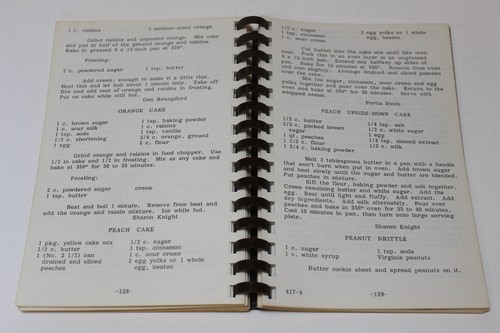 1 c. raisins 1 medium-sized orange
Grind raisins and unpeeled orange. Mix cake
and put in half of the ground orange and raisins.
Bake in greased 9 x 13-inch pan at 350°.
Frosting:
2 c. powdered sugar 1 tsp. butter
Add cream, enough to make it a little thin.
Heat this and let boil about 1 minute only. Take off
fire and add rest of orange and raisins in frosting.
Put on cake while still hot.
ORANGE CAKE
1 c. brown sugar 1 tsp. baking powder
1 c. sour milk 1 c. raisins
1 tsp. soda 1 tsp. vanilla
1/2 c. shortening 3/4 c. orange, ground
1 egg 2 c. flour
Grind orange and raisins in food chopper. Use
1/2 in cake and 1/2 in frosting. Mix as any cake and
bake at 350° for 30 to 35 minutes.
Frosting:
2 c. powdered sugar cream
1 tsp. butter
Heat and boil 1 minute. Remove from heat and
add the orange and raisin mixture. Ice while hot.
Sharon Knight
PEACH CAKE
1 pkg. yellow cake mix 1/2 c. sugar
1/2 c. butter 1 tsp. cinnamon
1 (No. 2 1/2) can 1 c. sour cream
drained and sliced 2 egg yolks or 1 whole
peaches egg, beaten
-128-
1/2 c. sugar 2 egg yolks or 1 whole
1 tsp. cinnamon egg, beaten
1 c. sour cream
Cut butter into the cake mix until like corn
meal. Pack this in an even layer in an ungreased
9 x 13-inch pan. Extend mix halfway up sides of
pan. Bake for 10 minutes at 350°. Remove from oven
and cool slightly. Arrange drained and sliced peaches
over the cake.
Mix the sugar, cinnamon, sour cream and egg
yolks together and pour over the cake. Return to the
oven and bake at 350° for 30 minutes. Serve with
whipped cream.
Portia Hines
PEACH UPSIDE-DOWN CAKE
1/2 c. butter 1/4 tsp. salt
1/2 c. packed brown 1/2 c. white sugar
sugar 1 egg
1 qt. peaches 1/4 tsp. almond extract
1 1/2 c. flour 1/3 c. milk
1 3/4 c. baking powder
Melt 3 tablespoons butter in a pan with a handle
that won't burn when put in oven. Add brown sugar
and heat slowly until the sugar and butter are blended.
Put peaches in mixture.
Sift the flour, baking powder and salt together.
Cream remaining butter and white sugar. Add the
egg. Beat until light and fluffy. Add extract. Add
dry ingredients. Add milk alternately. Pour over
peaches and bake in 350° oven for 35 to 40 minutes.
Cool 10 minutes in pan, then turn onto large serving
plate.
Sharon Knight
PEANUT BRITTLE
1 c. sugar 1 tsp. soda
1 c. white syrup Virginia peanuts
Butter cookie sheet and spread peanuts on it.
417-4 -129-